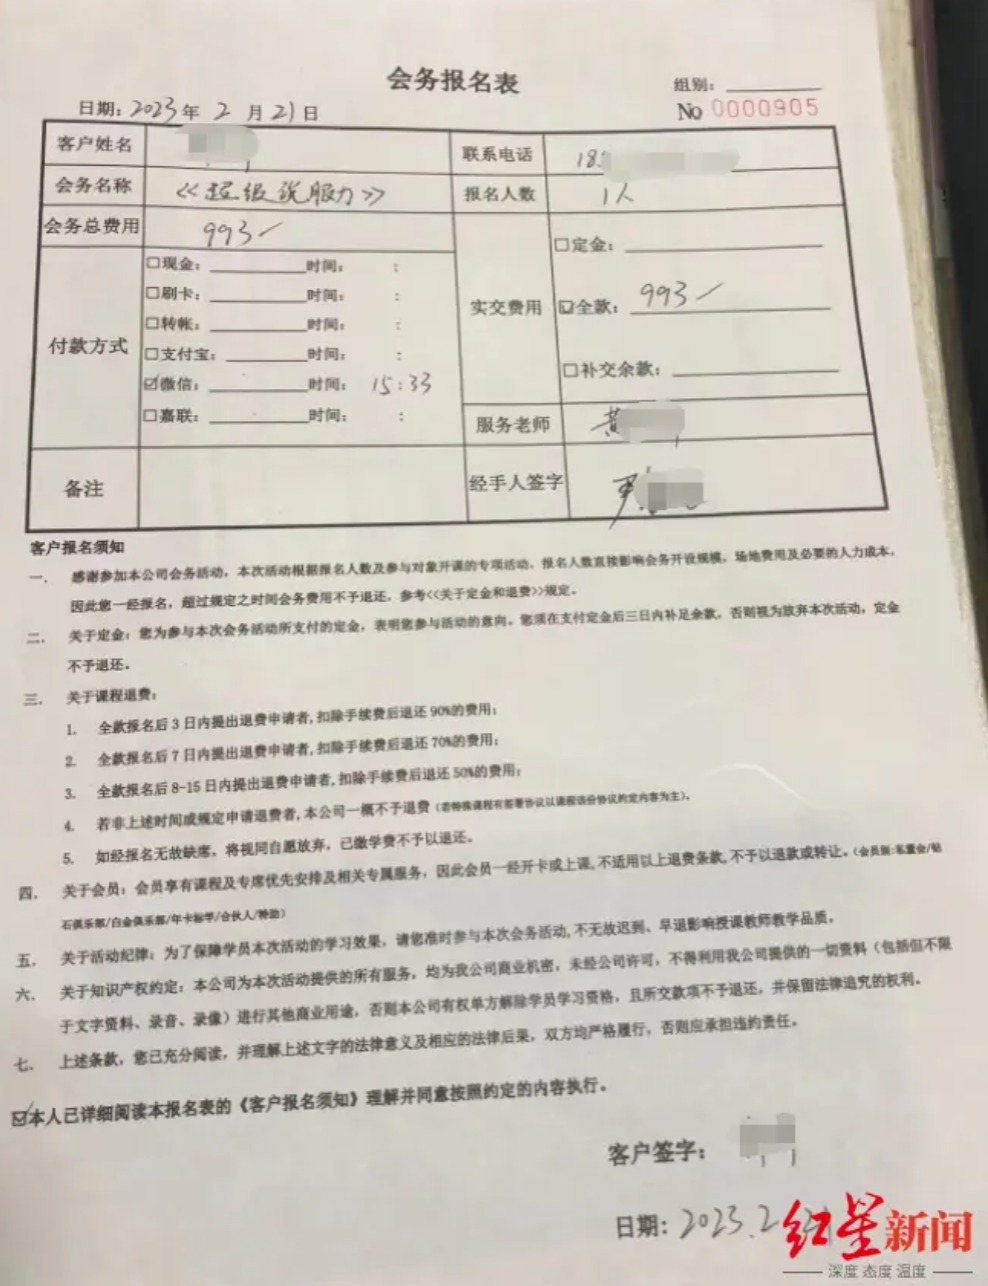 会务报名表
组别：
日期：2023年2月21日
No 0000905
客户姓名
联系电话 18
会务名称 《超级说服力》 报名人数 1人
会务总费用 993
付款方式
□现金： 时间： ：
□刷卡： 时间： ：
□转帐： 时间： ：
□支付宝： 时间： ：
☑微信： 时间： 15：33
□嘉联： 时间： ：
实交费用
□定金：
☑全款： 993
□补交余款：
服务老师 黄
备注
经手人签字
客户报名须知
一. 感谢参加本公司会务活动，本次活动根据报名人数及参与对象开课的专项活动，报名人数直接影响会务开设规模，场地费用及必要的人力成本，
因此您一经报名，超过规定之时间会务费用不予退还，参考<<关于定金和退费>>规定。
二. 关于定金：您为参与本次会务活动所支付的定金，表明您参与活动的意向，您须在支付定金后三日内补足余款，否则视为放弃本次活动，定金
不予退还。
三. 关于课程退费：
1. 全款报名后3日内提出退费申请者,扣除手续费后退还90%的费用；
2. 全款报名后7日内提出退费申请者,扣除手续费后退还70%的费用；
3. 全款报名后8-15日内提出退费申请者,扣除手续费后退还50%的费用；
4. 若非上述时间或规定申请退费者,本公司一概不予退费（若特殊课程有签署协议以课程该份协议约定内容为主）。
5. 如经报名无故缺席，将视同自愿放弃，已缴学费不予以退还。
四. 关于会员：会员享有课程及专席优先安排及相关专属服务，因此会员一经开卡或上课,不适用以上退费条款,不予以退款或转让。（会员指:私董会/钻
石俱乐部/白金俱乐部/年卡标竿/合伙人/赞助）
五. 关于活动纪律：为了保障学员本次活动的学习效果，请您准时参与本次会务活动,不无故迟到、早退影响授课教师教学品质。
六. 关于知识产权约定：本公司为本次活动提供的所有服务，均为我公司商业机密，未经公司许可，不得利用我公司提供的一切资料（包括但不限
于文字资料、录音、录像）进行其他商业用途，否则本公司有权单方解除学员学习资格，且所交款项不予退还，并保留法律追究的权利。
七. 上述条款，您已充分阅读，并理解上述文字的法律意义及相应的法律后果，双方均严格履行，否则应承担违约责任。
☑本人已详细阅读本报名表的《客户报名须知》理解并同意按照约定的内容执行。
客户签字：
日期：2023.2.21
红星新闻
深度 态度 温度